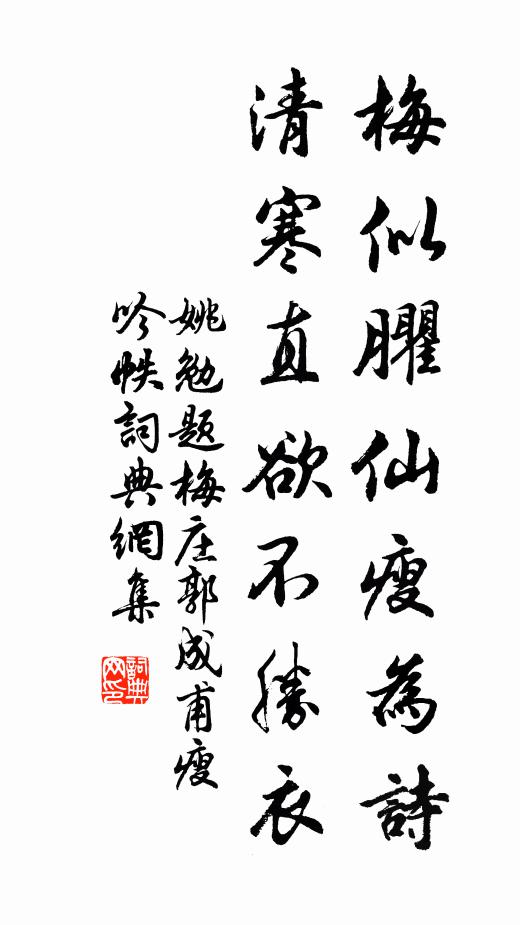 梅似臞仙瘦為詩
清寒直欲不勝衣
姚勉題梅庄郭成甫瘦
吟帙詞典網集
詞典网印